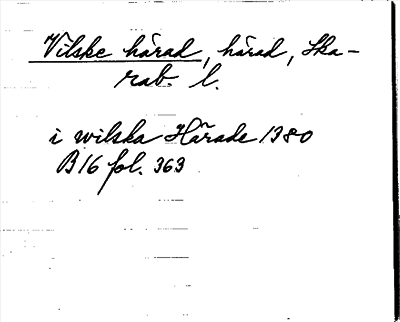 Vilske härad, härad, Ska-
rab. l.
i wilska Härade 1380
B16 fol. 363